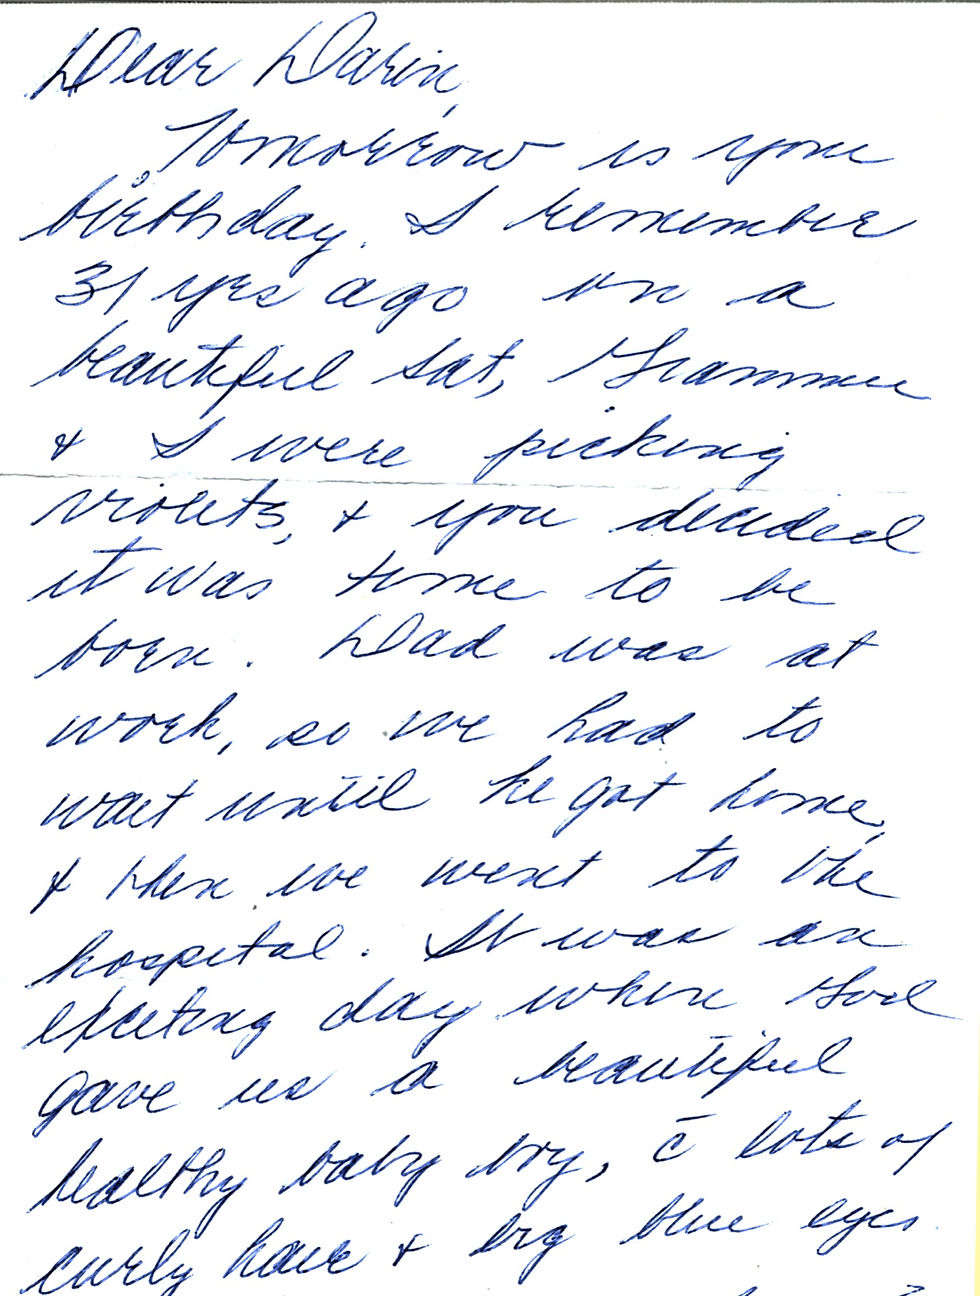 Dear Darin,
Tomorrow is your
birthday. I remember
31 yrs ago on a
beautiful Sat, Grammie
& I were picking
violets, & you decided
it was time to be
born. Dad was at
work, so we had to
wait until he got home,
& then we went to the
hospital. It was an
exciting day when God
gave us a beautiful
healthy baby boy, c̄ lots of
curly hair & big blue eyes